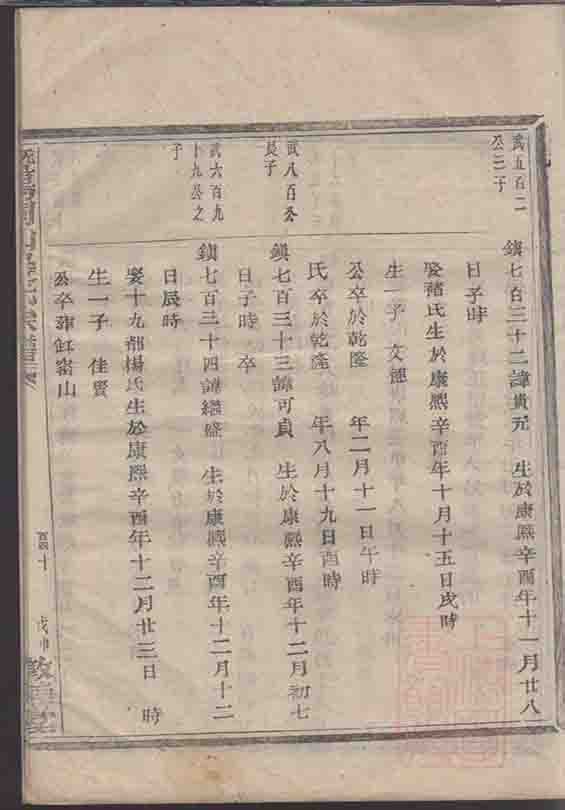 武五百二
公三子
鎮七百三十二諱貴元 生於康熙辛酉年十一月廿八
日子時
娶褚氏生於康熙辛酉年十月十五日戌時
生一子 文德
公卒於乾隆 年二月十一日午時
氏卒於乾隆 年八月十九日酉時
武八百公
長子
鎮七百三十三諱可貞 生於康熙辛酉年十二月初七
日子時 卒
武六百九
十九公之
子
鎮七百三十四諱繼盛 生於康熙辛酉年十二月十二
日辰時
娶十九都楊氏生於康熙辛酉年十二月廿三日 時
生一子 佳賢
公卒葬缸窑山
十